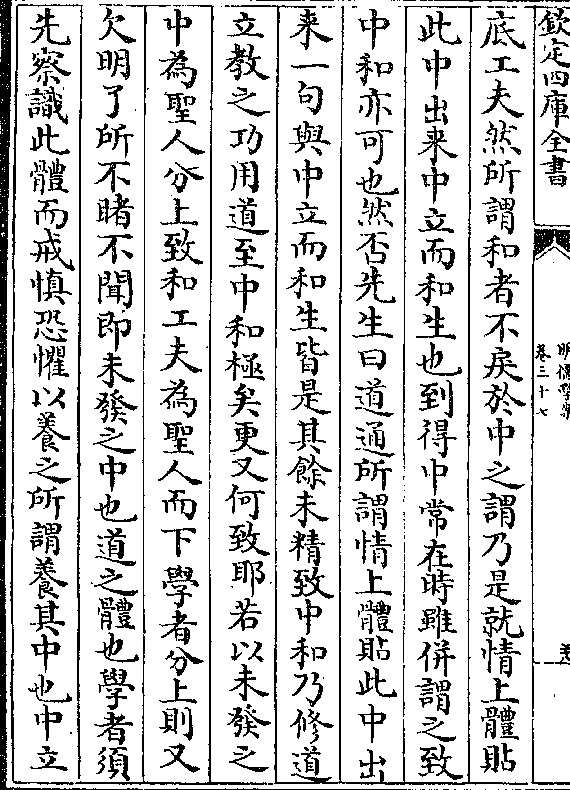 欽定四庫全書
明儒學案
卷三十七
底工夫然所謂和者不戾於中之謂乃是就情上體貼
此中出来中立而和生也到得中常在時雖併謂之致
中和亦可也然否先生曰道通所謂情上體貼此中出
来一句與中立而和生皆是其餘未精致中和乃修道
立教之功用道至中和極矣更又何致耶若以未發之
中為聖人分上致和工夫為聖人而下學者分上則又
欠明了所不睹不聞即未發之中也道之體也學者須
先察識此體而戒慎恐懼以養之所謂養其中也中立